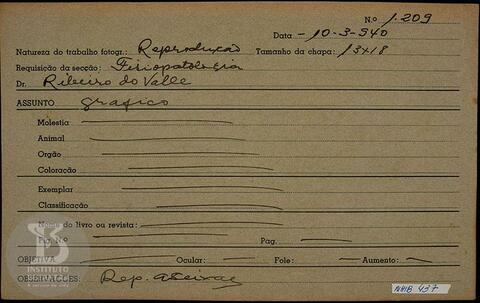 N.º 1.209
Data - 10-3-940
Natureza do trabalho fotogr.: Reprodução Tamanho da chapa: 13x18
Requisição da secção: Fisiopatologia
Dr. Ribeiro do Valle
ASSUNTO grafico
Molestia
Animal
Orgão
Coloração
Exemplar
Classificação
Nome do livro ou revista:
Pig. N.º Pag.
OBJETIVA Ocular: Fole: Aumento:
OBSERVAÇÕES: Rep.
INSTITUTO
NHIB 437